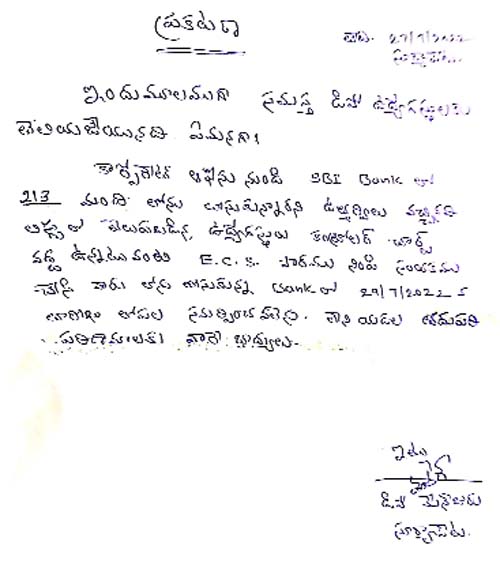 ప్రకటన
తేది. 27/7/2022
సూర్యాపేట..
ఇందుమూలముగా సమస్త డిపో ఉద్యోగస్థులకు
తెలియజేయునది ఏమనగా!
కార్పోరేట్ ఆఫీసు నుండి SBI Bank లో
213 మంది లోను తీసుకున్నారని ఉత్తర్వులు వచ్చినవి
లో తెలుపబడిన ఉద్యోగస్తులు కంట్రోలర్ చార్ట్
వద్ద ఉన్నటువంటి E.C.S. ఫారము నింపి సంతకము
చేసి వారు లోను తీసుకున్న Bank లో 29/7/2022
తారీఖు లోపల సమర్పించవలెను. లేని యెడల తదుపరి
పరిణామాలకు వారే బాధ్యులు.
ఇట్లు
డిపో మేనేజరు
సూర్యాపేట.